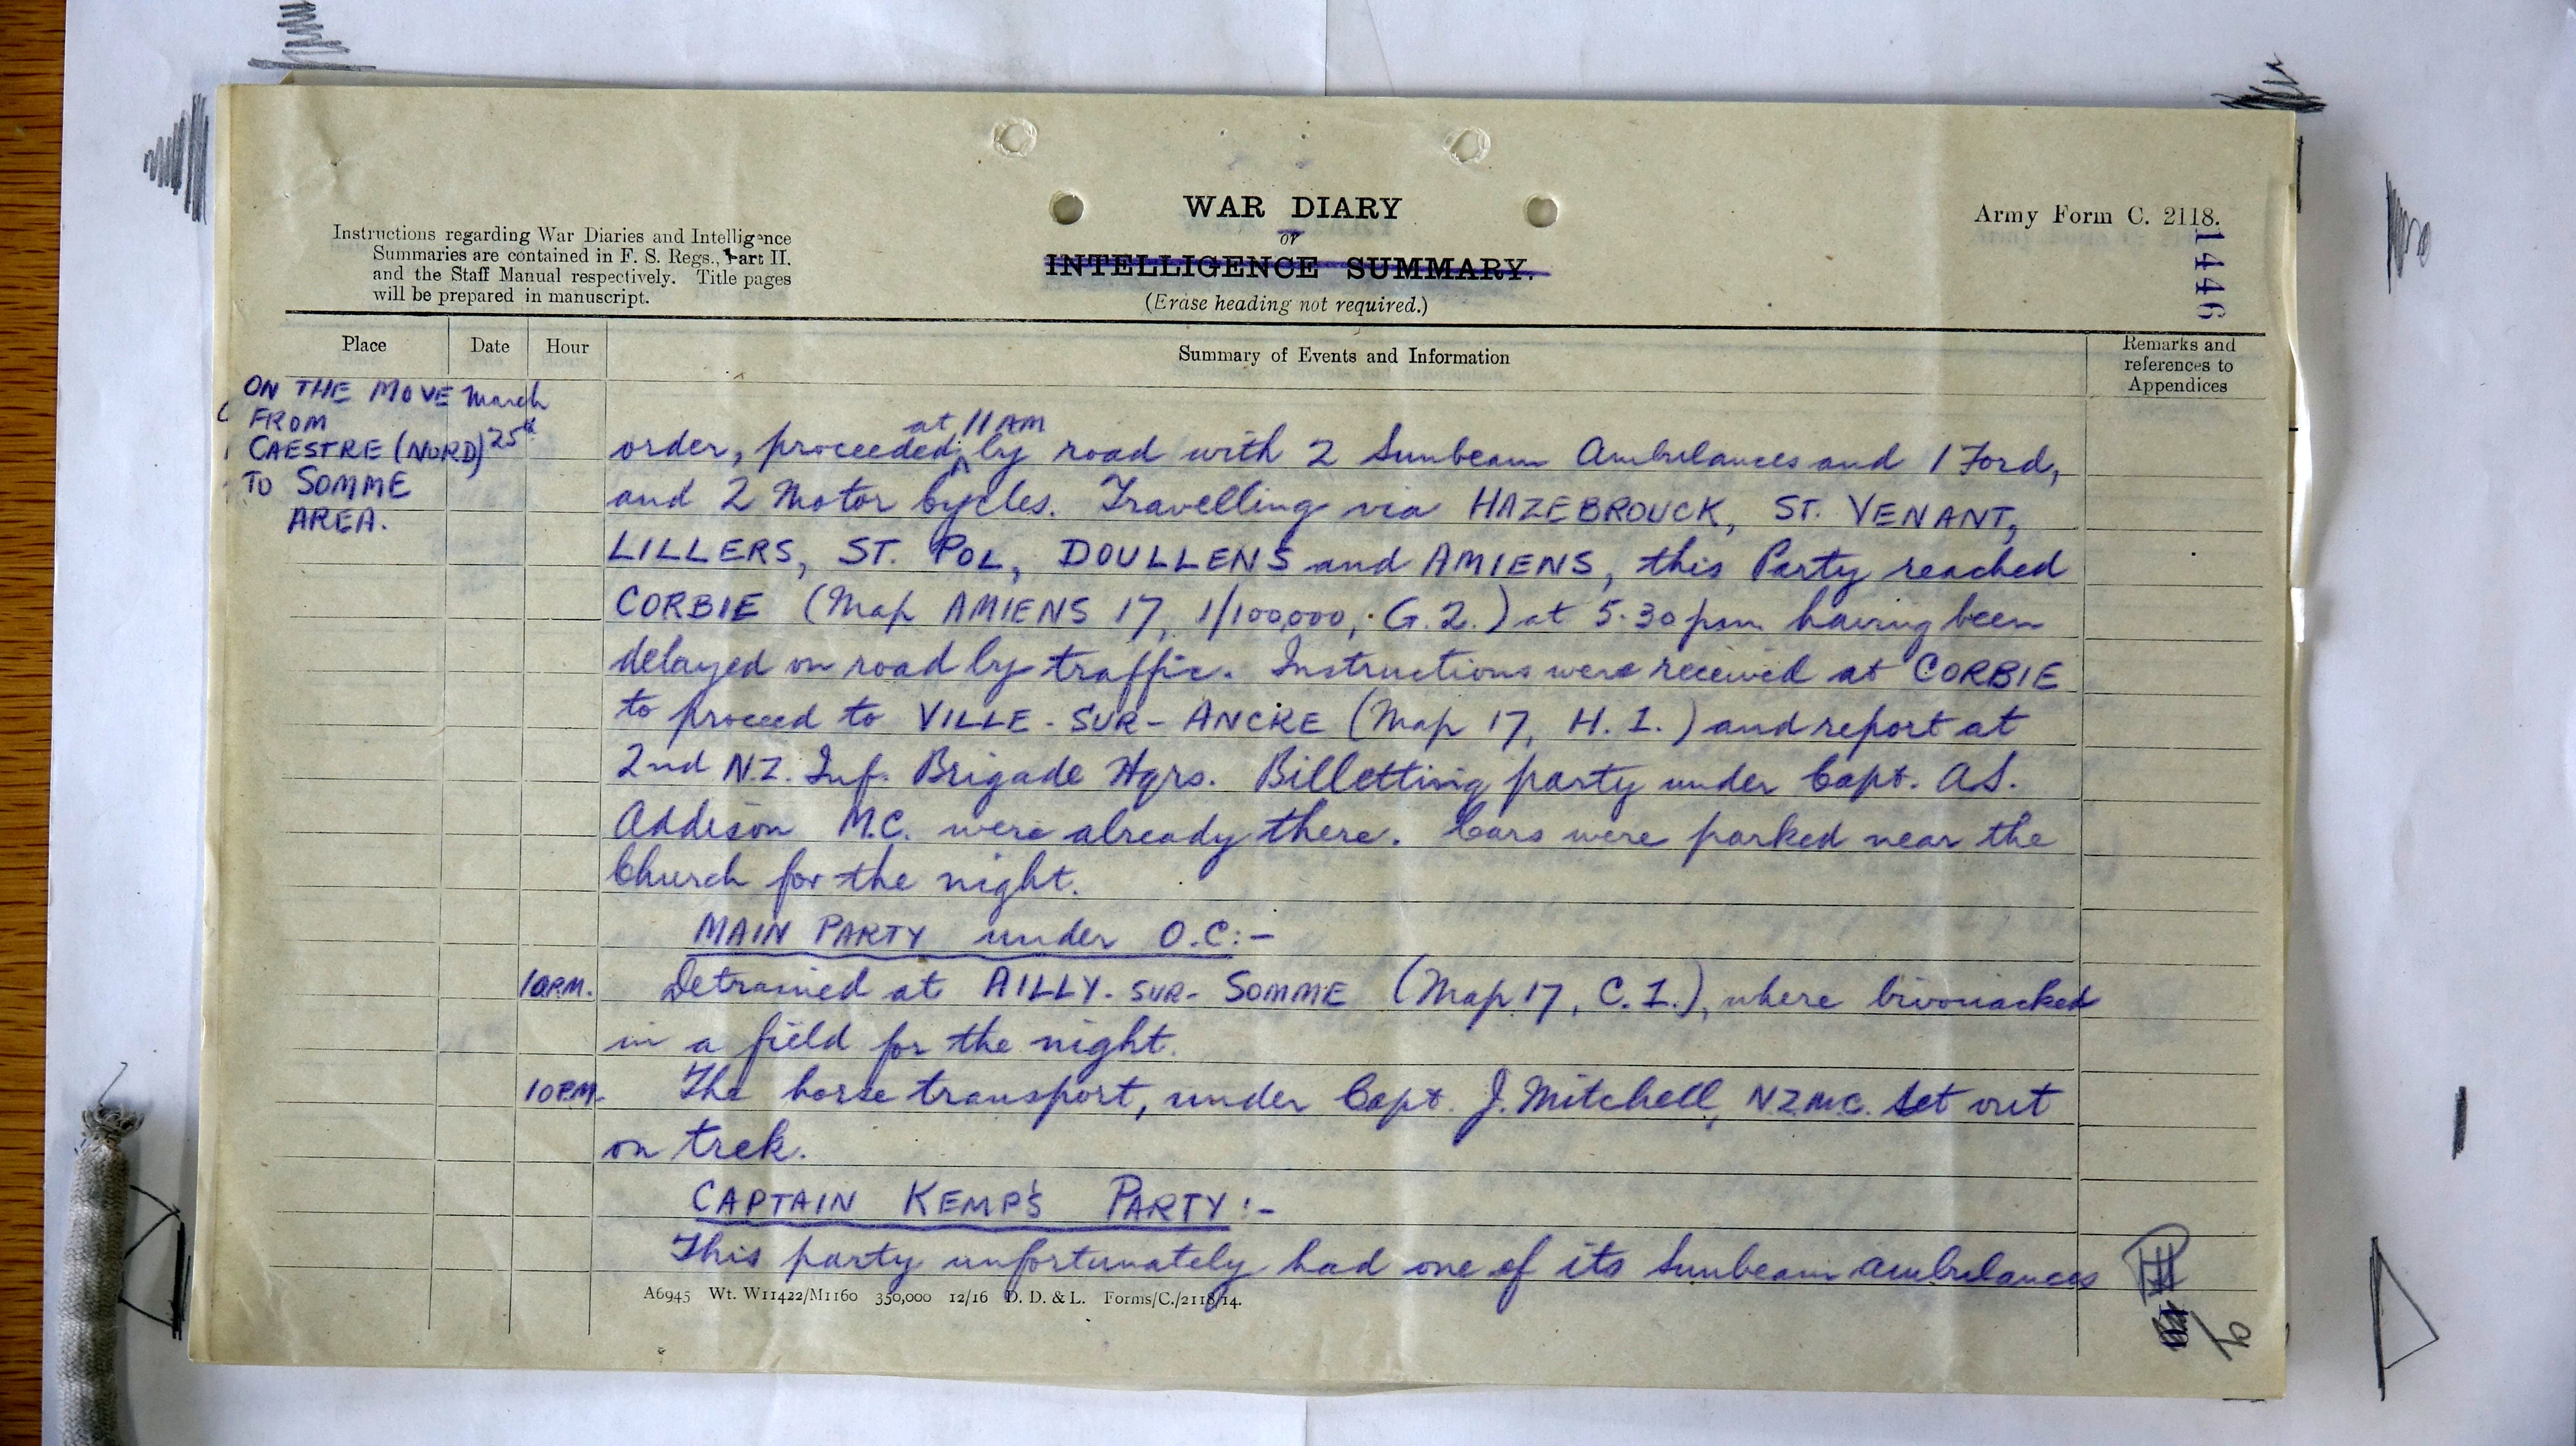 WAR DIARY
or
INTELLIGENCE SUMMARY.
(Erase heading not required.)
Army Form C. 2118.
14446
Instructions regarding War Diaries and Intelligence
Summaries are contained in F. S. Regs., Part II.
and the Staff Manual respectively. Title pages
will be prepared in manuscript.
Place Date Hour Summary of Events and Information Remarks and
references to
Appendices
ON THE MOVE March
FROM
CAESTRE (NORD) 25th
TO SOMME
AREA.
at 11 AM
order, proceeded by road with 2 Sunbeam Ambulances and 1 Ford,
and 2 Motor Cycles. Travelling via HAZEBROUCK, ST. VENANT,
LILLERS, ST. POL, DOULLENS and AMIENS, this Party reached
CORBIE (Map AMIENS 17, 1/100,000, G. 2.) at 5.30 pm having been
delayed on road by traffic. Instructions were received at CORBIE
to proceed to VILLE-SUR-ANCRE (Map 17, H. I.) and report at
2nd N.Z. Inf. Brigade Hqrs. Billetting party under Capt. A.S.
Addison M.C. were already there. Cars were parked near the
Church for the night.
MAIN PARTY under O.C:-
10P.M. Detrained at AILLY-SUR-SOMME (Map 17, C. I.), where bivouacked
in a field for the night.
10P.M. The horse transport, under Capt. J. Mitchell, NZMC. set out
on trek.
CAPTAIN KEMP'S PARTY:-
This party unfortunately had one of its Sunbeam ambulances
A6945 Wt. W11422/M1160 350,000 12/16 D. D. & L. Forms/C./2118/14.
9